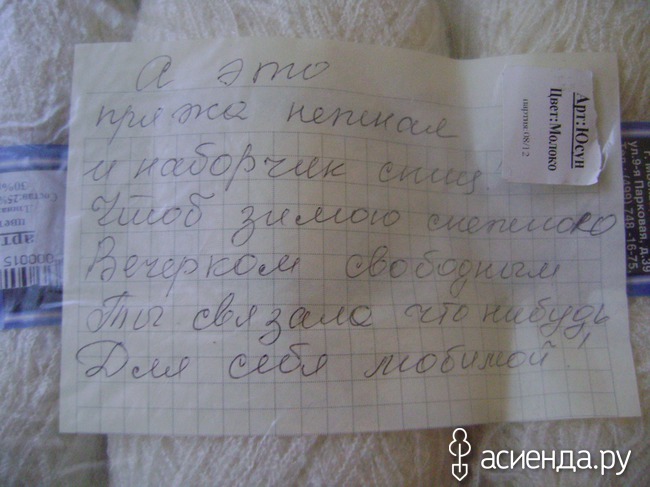 А это
пряжа нежная
и наборчик спиц.
Чтоб зимою снежною
Вечерком свободным
Ты связала что нибудь
Для себя любимой!
Арт:Юсун
Цвет:Молоко
партия 08/12
ул.9-я Парковая, д.39
748-16-75
30%
арт
000015
асиенда.ру